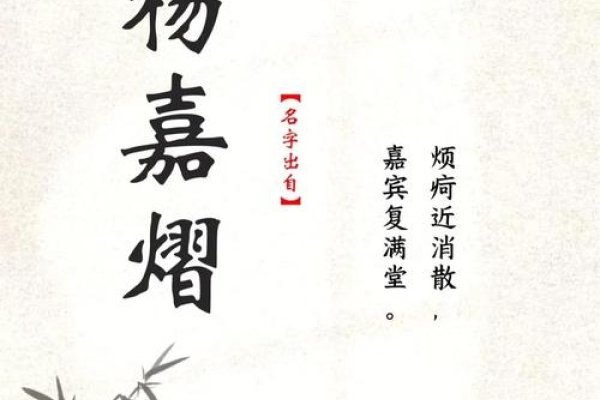 杨嘉熠
【名字出自】
烦疴近消散，
嘉宾复满堂。